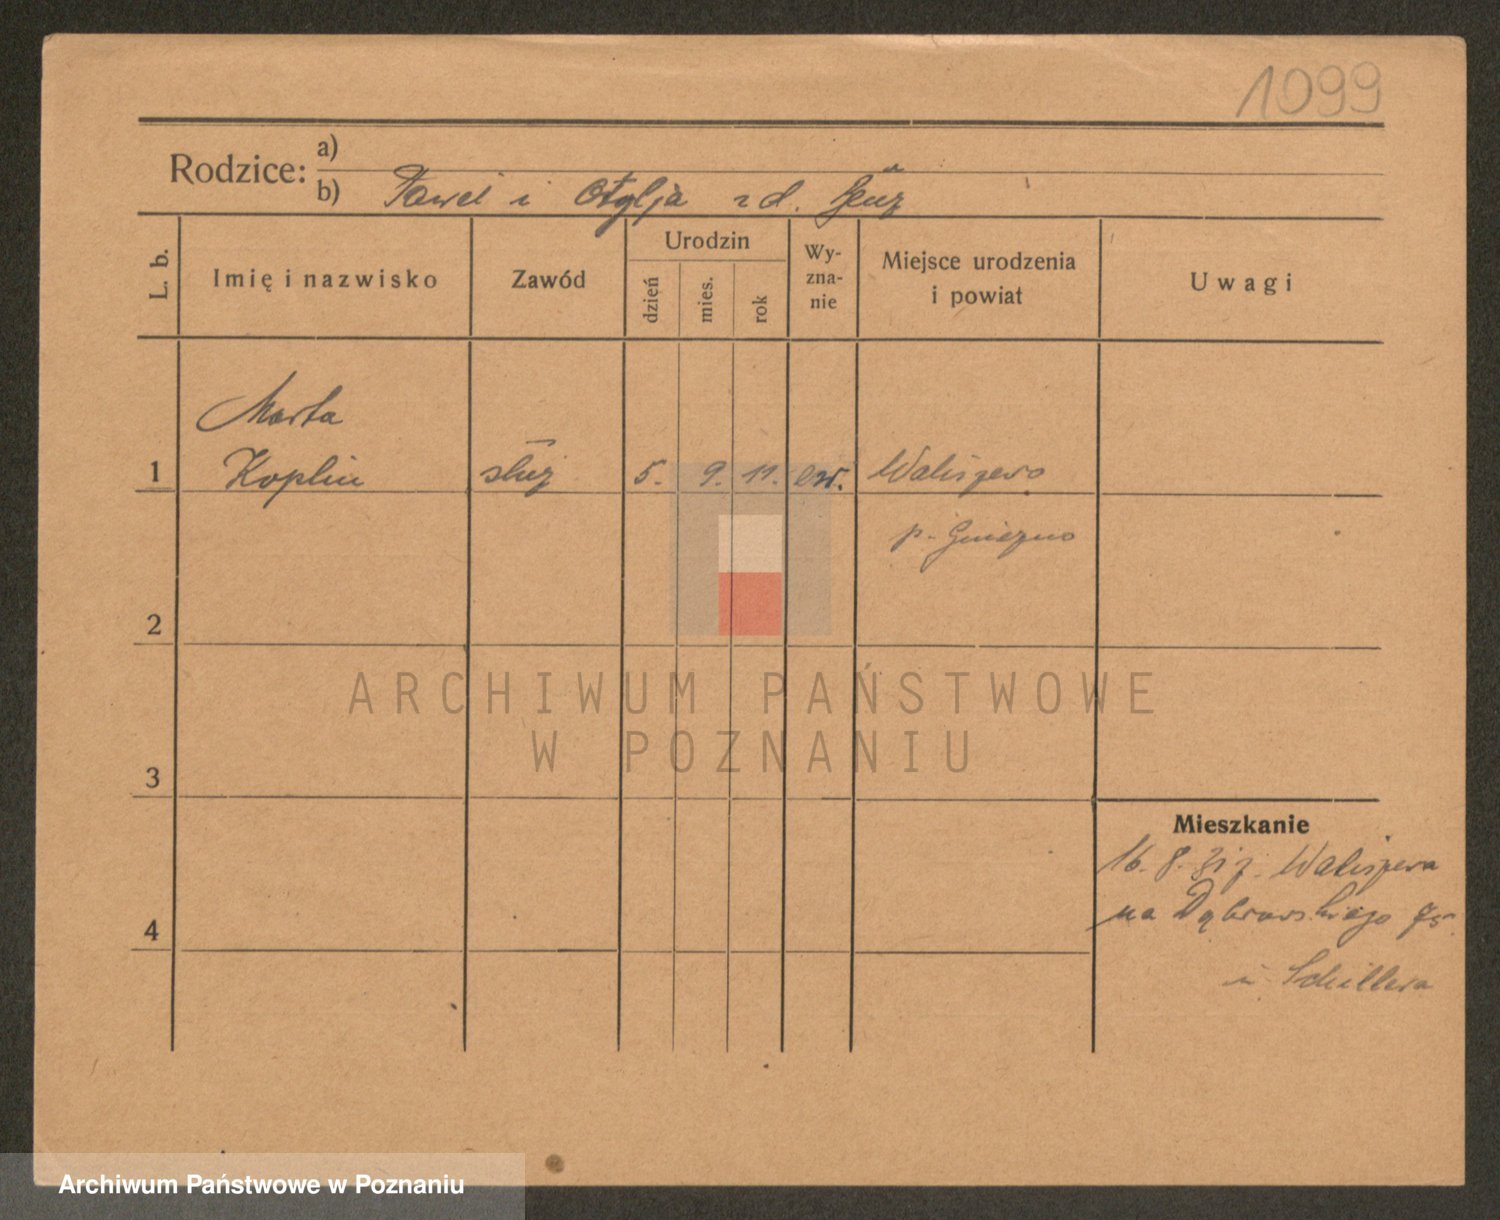 1099
Rodzice: a)
b) Paweł i Otylja z d.
L. b.
Imię i nazwisko
Zawód
Urodzin
dzień
mies.
rok
Wy-
zna-
nie
Miejsce urodzenia
i powiat
Uwagi
Marta
1 Koplin służ 5. 9. 11. ew. Waliszewo
p. Gniezno
2
3
4
Mieszkanie
16. 8. 31 z Waliszewa
na Dąbrowskiego 75
u Schillera
ARCHIWUM PAŃSTWOWE
W POZNANIU
Archiwum Państwowe w Poznaniu